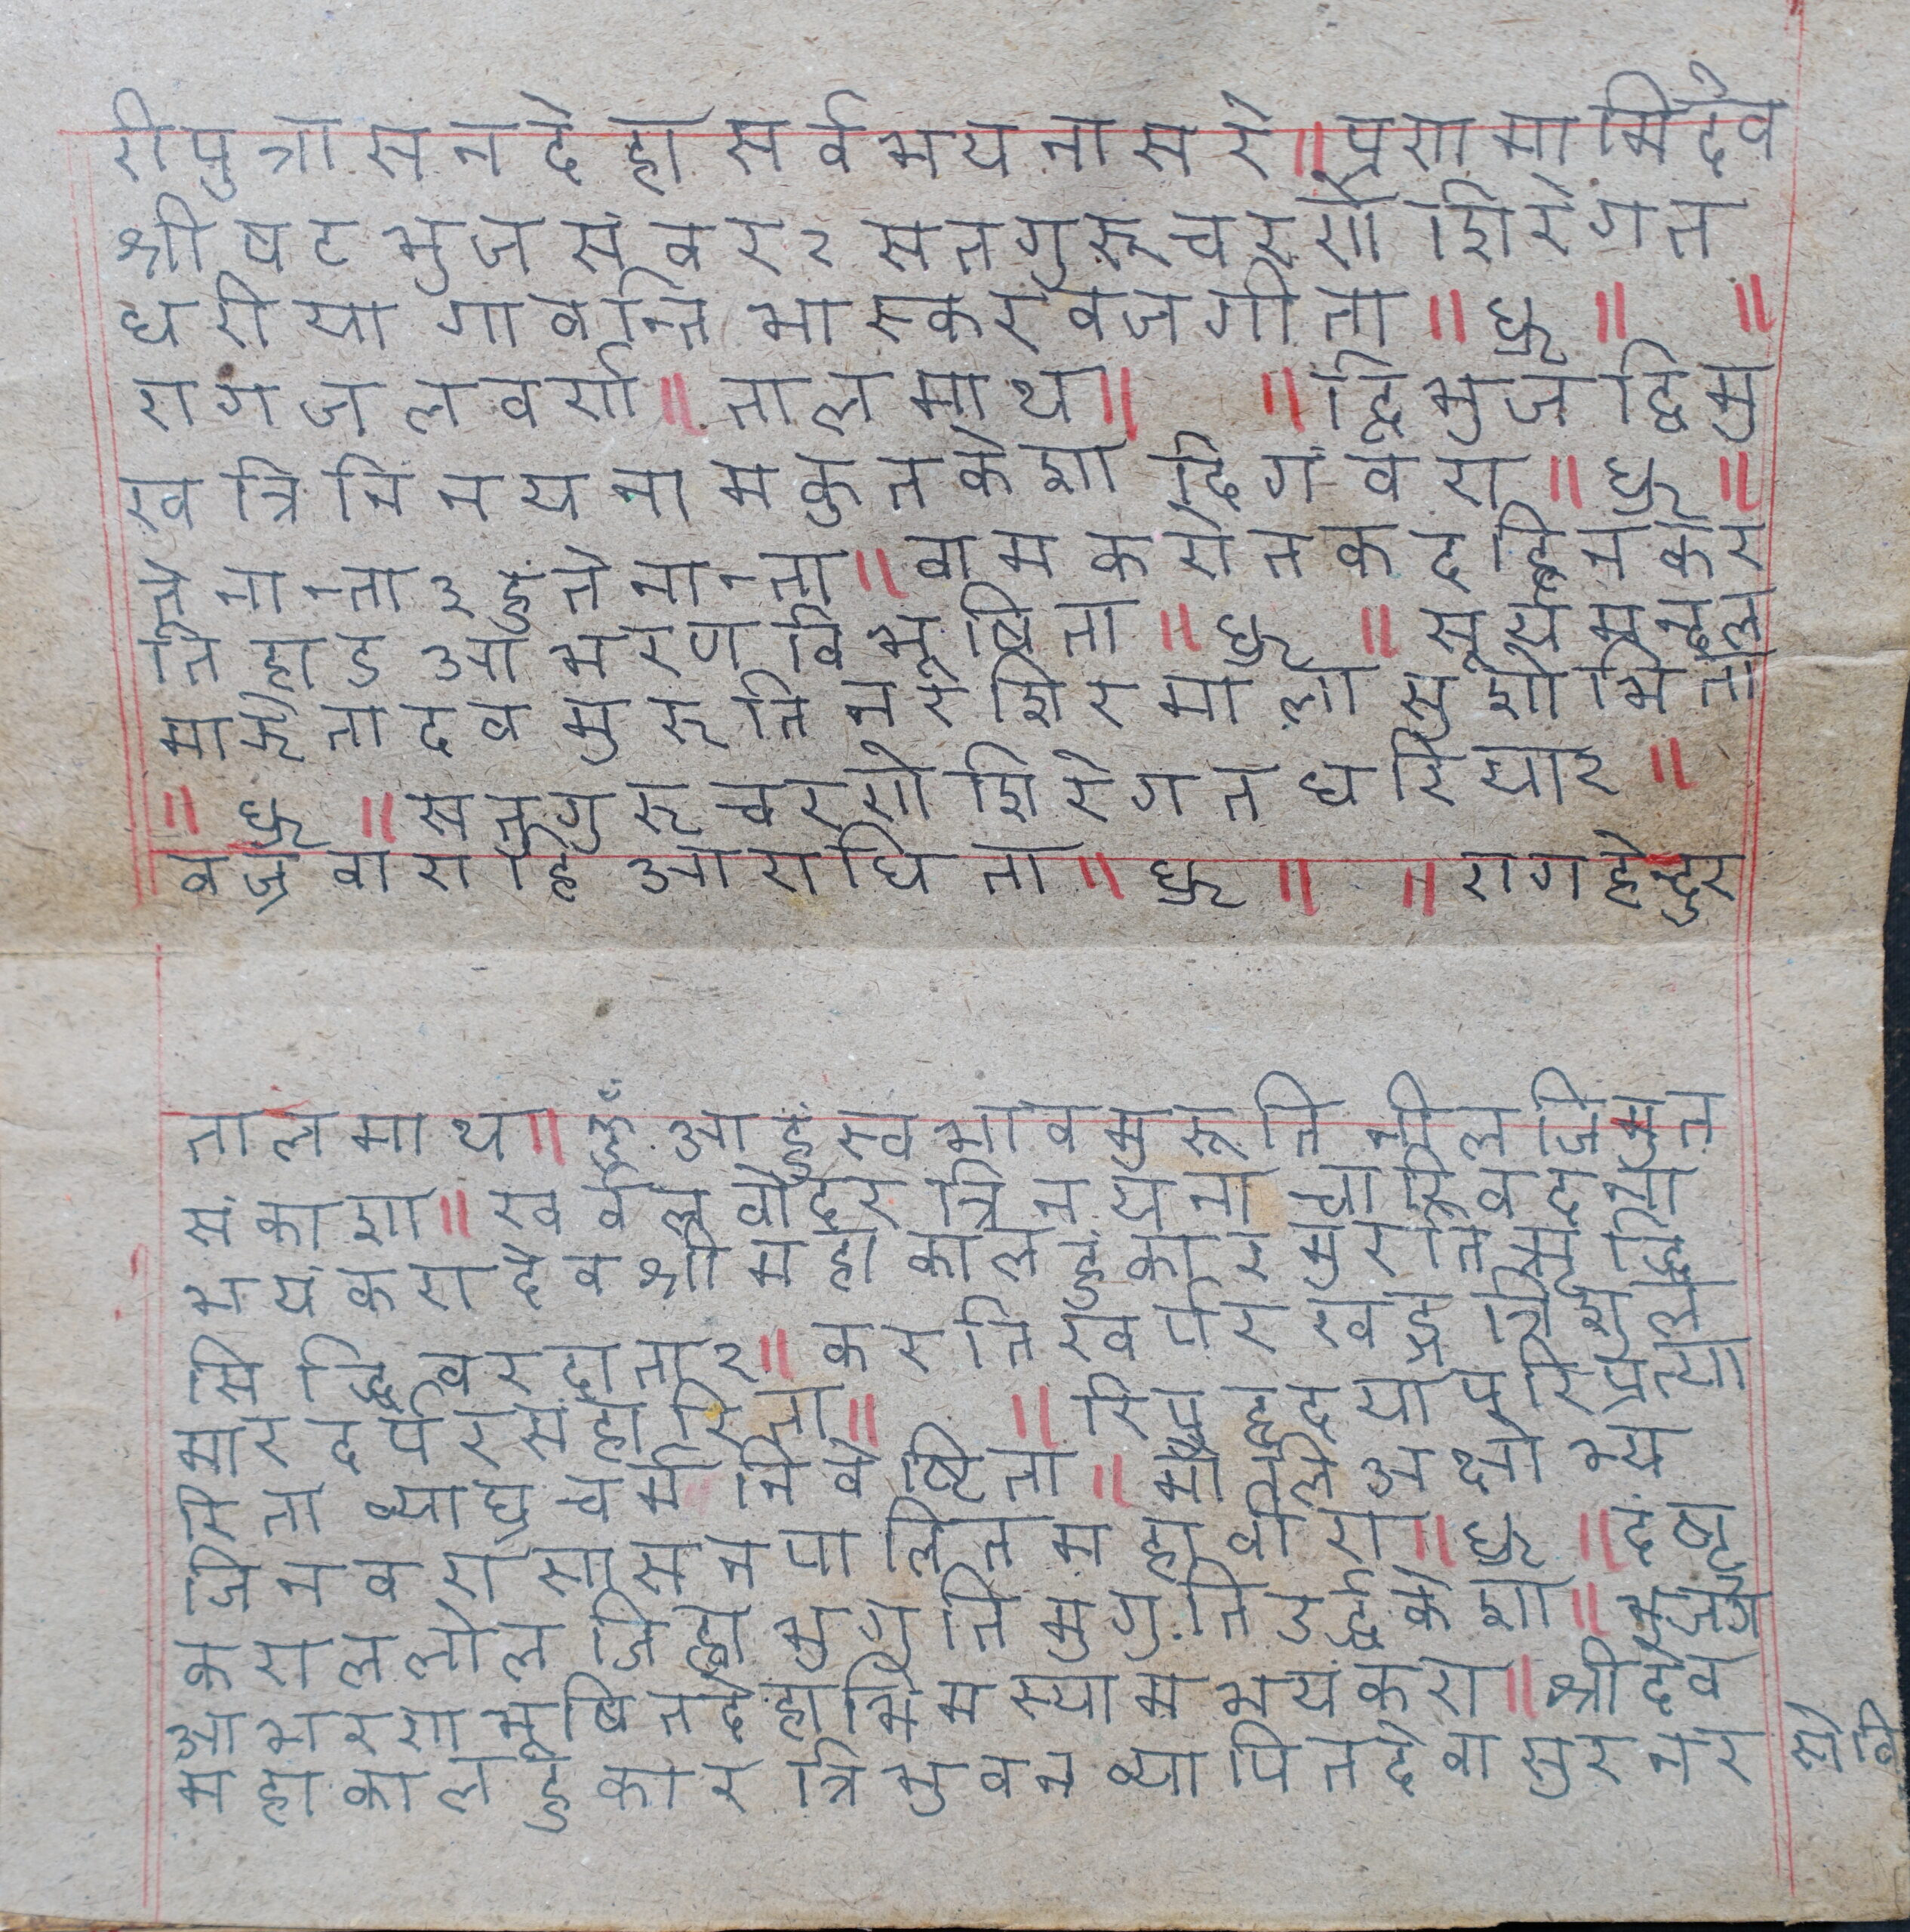 रीपुत्रासनदेहा सर्वभयनासरे॥प्रणामामिदेव
श्रीषटभुजसंवरर सतगुरूचरणे शिरेगत
धरीया गावन्ति भास्करवजगीता ॥ ध्रु ॥ ॥
रागजलवर्णा॥ तालमाथ॥ ॥द्विभुजद्विमु
खत्रिनिनयना मकुतकेशा दिगंवरा॥ ध्रु ॥
त्रेनान्तार हुं तेनान्ता॥ वामकरोतक दहिनकर
ति हाड आभरण विभूषिता ॥ ध्रु ॥ सूर्यमन्दल
माझेतादवमुरूति नरशिरमाला सुशोभिता
॥ ध्रु ॥सतगुरूचरणे शिरेगत धरियार ॥
वज्रवाराहि आराधिता॥ ध्रु ॥ ॥ रागहेन्दुर
तालमाथ॥ हूँ आहुंस्वभावमुरूति नीलजिमुत
संकाशा॥ खर्वलंवोदर त्रिनयना चारूवदना
भयंकरादेवश्रीमहाकालहुंकारमुरति
सिद्धिवरदातार॥ करतिखर्पर खड्गत्रिशुल
मारदर्परसंहारिता॥ ॥ रिपुहृदयापरि
सिता व्याघ्रचर्मनिवेष्टिता॥ मौलि अक्षोभ्य
जिनवरा सासनपालितमहावीरा॥ ध्रु ॥ दंष्ट्र
करालललोल जिह्वा भुगुतिमुगुति उर्द्धकेशा॥ भुजंग
आभरणाभूषितदेहा भिमस्याम भयंकरा॥ श्रीदेव
महाकालहुंकार त्रिभुवनव्यापित देवासुरनर सेवि